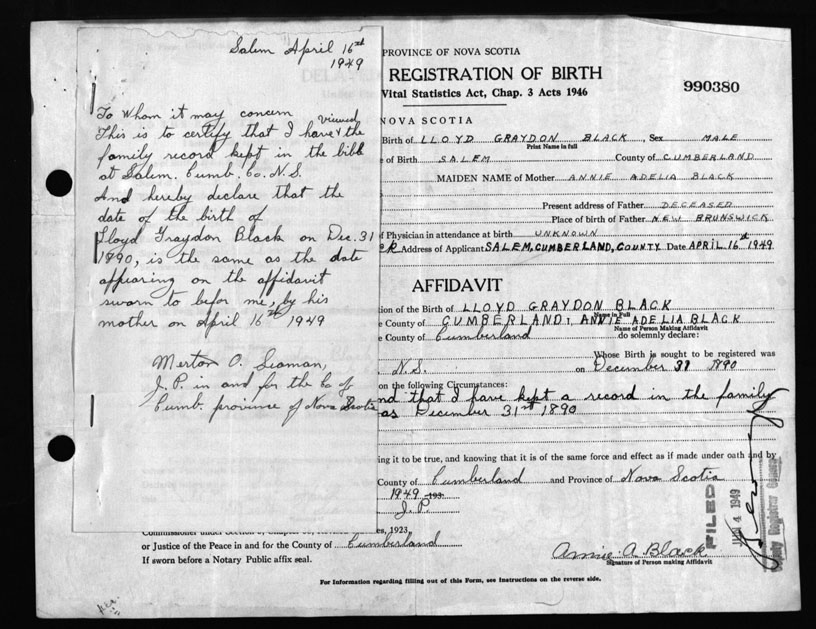 Salem April 16nd
1949
To whom it may concern
This is to certify that I have viewed the
family record kept in the bible
at Salem. Cumb. Co. N.S.
And hereby declare that the
date of the birth of
Lloyd Graydon Black on Dec. 31
1890, is the same as the date
appearing on the affidavit
sworn to befor me, by his
mother on April 16th 1949
Merton O. Seaman,
J.P. in and for the Co of
Cumb. province of Nova Scotia
PROVINCE OF NOVA SCOTIA
REGISTRATION OF BIRTH
Vital Statistics Act, Chap. 3 Acts 1946
990380
NOVA SCOTIA
Birth of LLOYD GRAYDON BLACK, Sex MALE
Print Name in full
e of Birth SALEM County of CUMBERLAND
MAIDEN NAME of Mother ANNIE ADELIA BLACK
Present address of Father DECEASED
Place of birth of Father NEW BRUNSWICK
f Physician in attendance at birth UNKNOWN
ER Address of Applicant SALEM, CUMBERLAND, COUNTY Date APRIL 16th 1949
AFFIDAVIT
ion of the Birth of LLOYD GRAYDON BLACK
Name in Full
e County of CUMBERLAND I ANNIE ADELIA BLACK
Name of Person Making Affidavit
e County of Cumberland do solemnly declare:
Whose Birth is sought to be registered was
N.S. on December 31 1890
on the following Circumstances:
nd that I have kept a record in the family
as December 31st 1890
ing it to be true, and knowing that it is of the same force and effect as if made under oath and by
County of Cumberland and Province of Nova Scotia
1949 193
J.P.
es, 1923.
or Justice of the Peace in and for the County of Cumberland
If sworn before a Notary Public affix seal.
Annie A. Black
Signature of Person making Affidavit
FILED
4 1949
For Information regarding filling out of this Form, see Instructions on the reverse side.